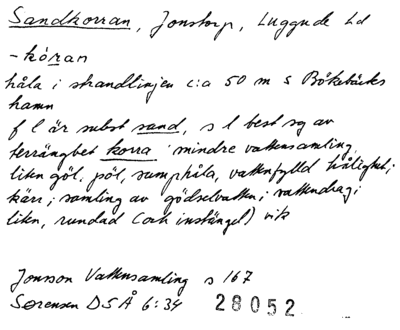 Sandkorran, Jonstorp, Luggude hd
-kå̀ran
håla i strandlinjen c:a 50 m S Bökebäcks
hamn
f l är subst sand, s l best sg av
terrängbet korra 'mindre vattensamling,
liten göl, pöl, sumphåla, vattenfylld hålighet;
kärr; samling av gödselvatten; vattendrag;
liten, rundad (och instängd) vik
Jonsson Vattensamling s 167
Sørensen DSÅ 6:34 28052